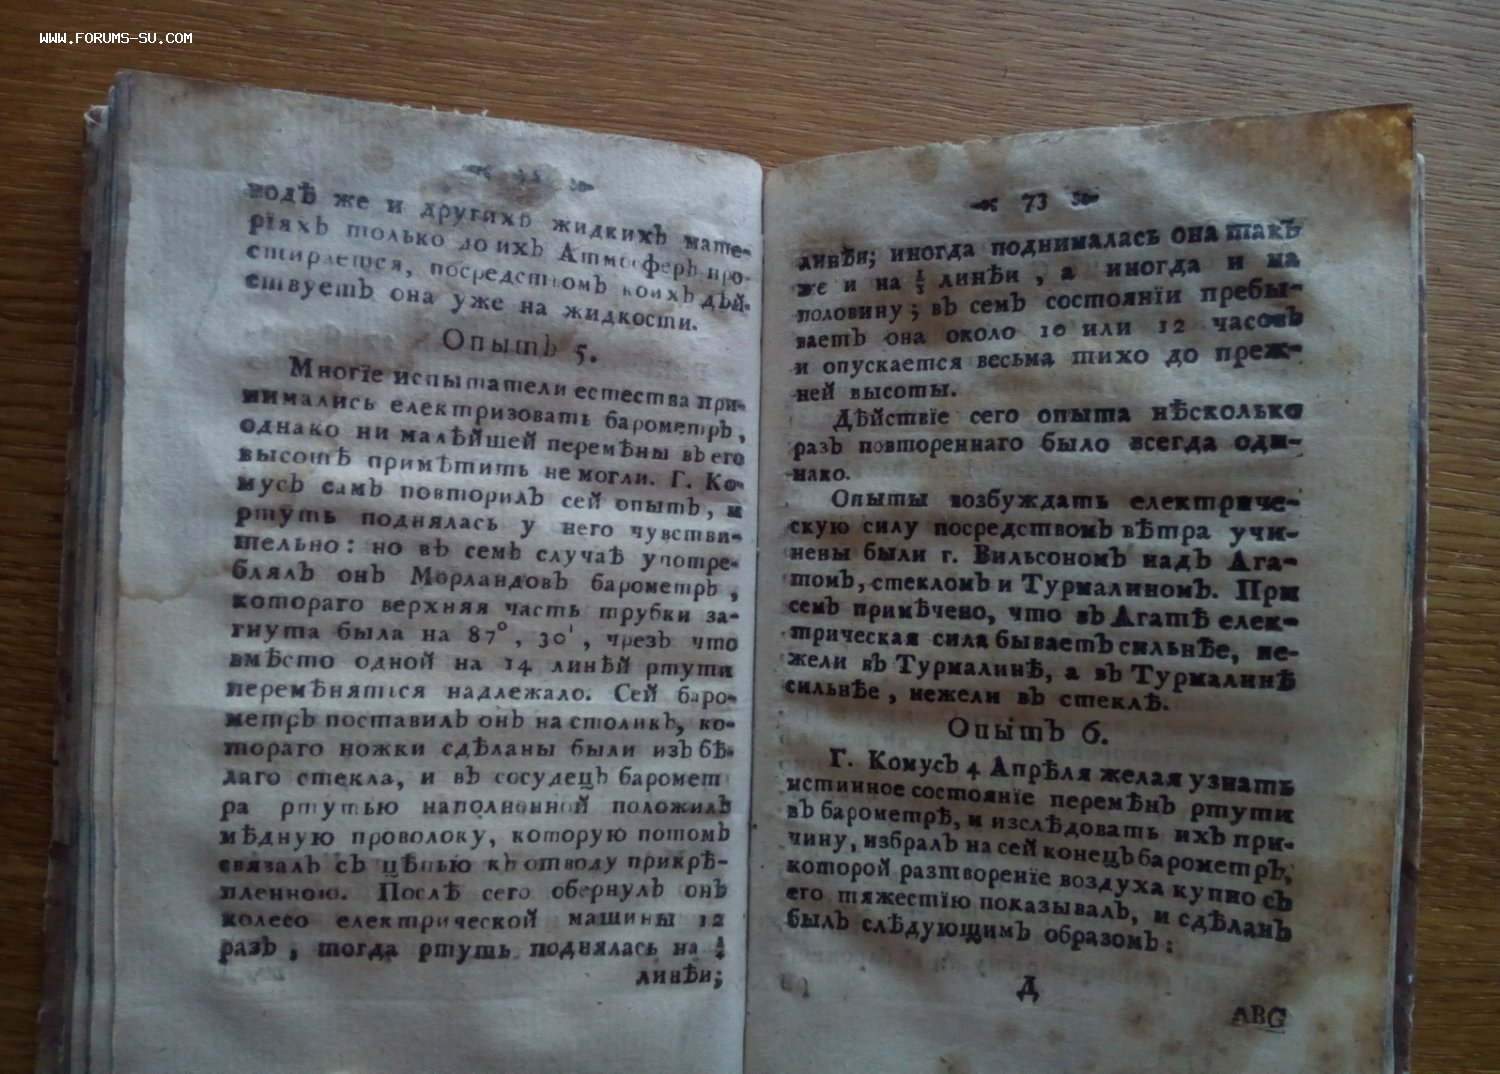 WWW.FORUMS-SU.COM
водѣ же и другихъ жидкихъ мате-
рїяхъ только до ихъ Атмосферъ про-
стирается, посредствомъ коихъ дѣй-
ствуетъ она уже на жидкости.
Опытъ 5.
Многїе испытатели естества при-
нимались електризовать барометръ,
однако ни малѣйшей перемѣны въ его
высотѣ примѣтить не могли. Г. Ко-
мусъ самъ повторилъ сей опытъ, и
ртуть поднялась у него чувстви-
тельно: но въ семъ случаѣ употре-
блялъ онъ Морландовъ барометръ,
котораго верхняя часть трубки за-
гнута была на 87°, 30', чрезъ что
вмѣсто одной на 14 линѣй ртути
перемѣняться надлежало. Сей баро-
метръ поставилъ онъ на столикъ, ко-
тораго ножки сдѣланы были изъ бѣ-
лаго стекла, и въ сосудецъ баромет
ра ртутью наполненной положилъ
мѣдную проволоку, которую потомъ
связалъ съ цѣпью къ отводу прикрѣ-
пленною. Послѣ сего обернулъ онъ
колесо електрической машины 12
разъ, тогда ртуть поднялась на
линѣи;
73
линѣи; иногда поднималась она такъ
же и на ⅓ линѣи, а иногда и на
половину; въ семъ состоянїи пребы-
ваетъ она около 10 или 12 часовъ
и опускается весьма тихо до преж-
ней высоты.
Дѣйствїе сего опыта нѣсколько
разъ повтореннаго было всегда оди-
нако.
Опыты возбуждать електриче-
скую силу посредствомъ вѣтра учи-
нены были г. Вильсономъ надъ Ага-
томъ, стекломъ и Турмалиномъ. При
семъ примѣчено, что въ Агатѣ елек-
трическая сила бываетъ сильнѣе, не-
жели въ Турмалинѣ, а въ Турмалинѣ
сильнѣе, нежели въ стеклѣ.
Опытъ 6.
Г. Комусъ 4 Апрѣля желая узнать
истинное состоянїе перемѣнъ ртути
въ барометрѣ, и изслѣдовать ихъ при-
чину, избралъ на сей конецъ барометръ,
которой разтворенїе воздуха купно съ
его тяжестїю показывалъ, и сдѣланъ
былъ слѣдующимъ образомъ:
Д
ABG